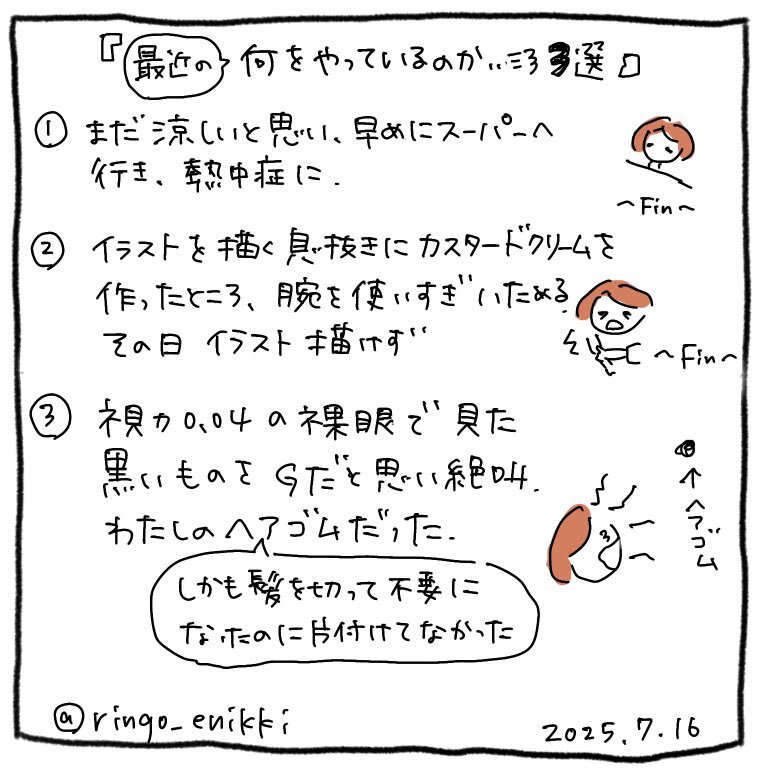 『最近の何をやっているのか…ミろ3選』
① まだ涼しいと思い、早めにスーパーへ
行き、熱中症に.
~Fin~
② イラストを描く息抜きにカスタードクリームを
作ったところ、腕を使いすぎいためる.
その日 イラスト描けず
~Fin~
③ 視力0.04の裸眼で見た
黒いものをGだと思い絶叫.
わたしのヘアゴムだった.
↑ヘアゴム
しかも髪を切って不要に
なったのに片付けてなかった
@ringo_enikki
2025.7.16